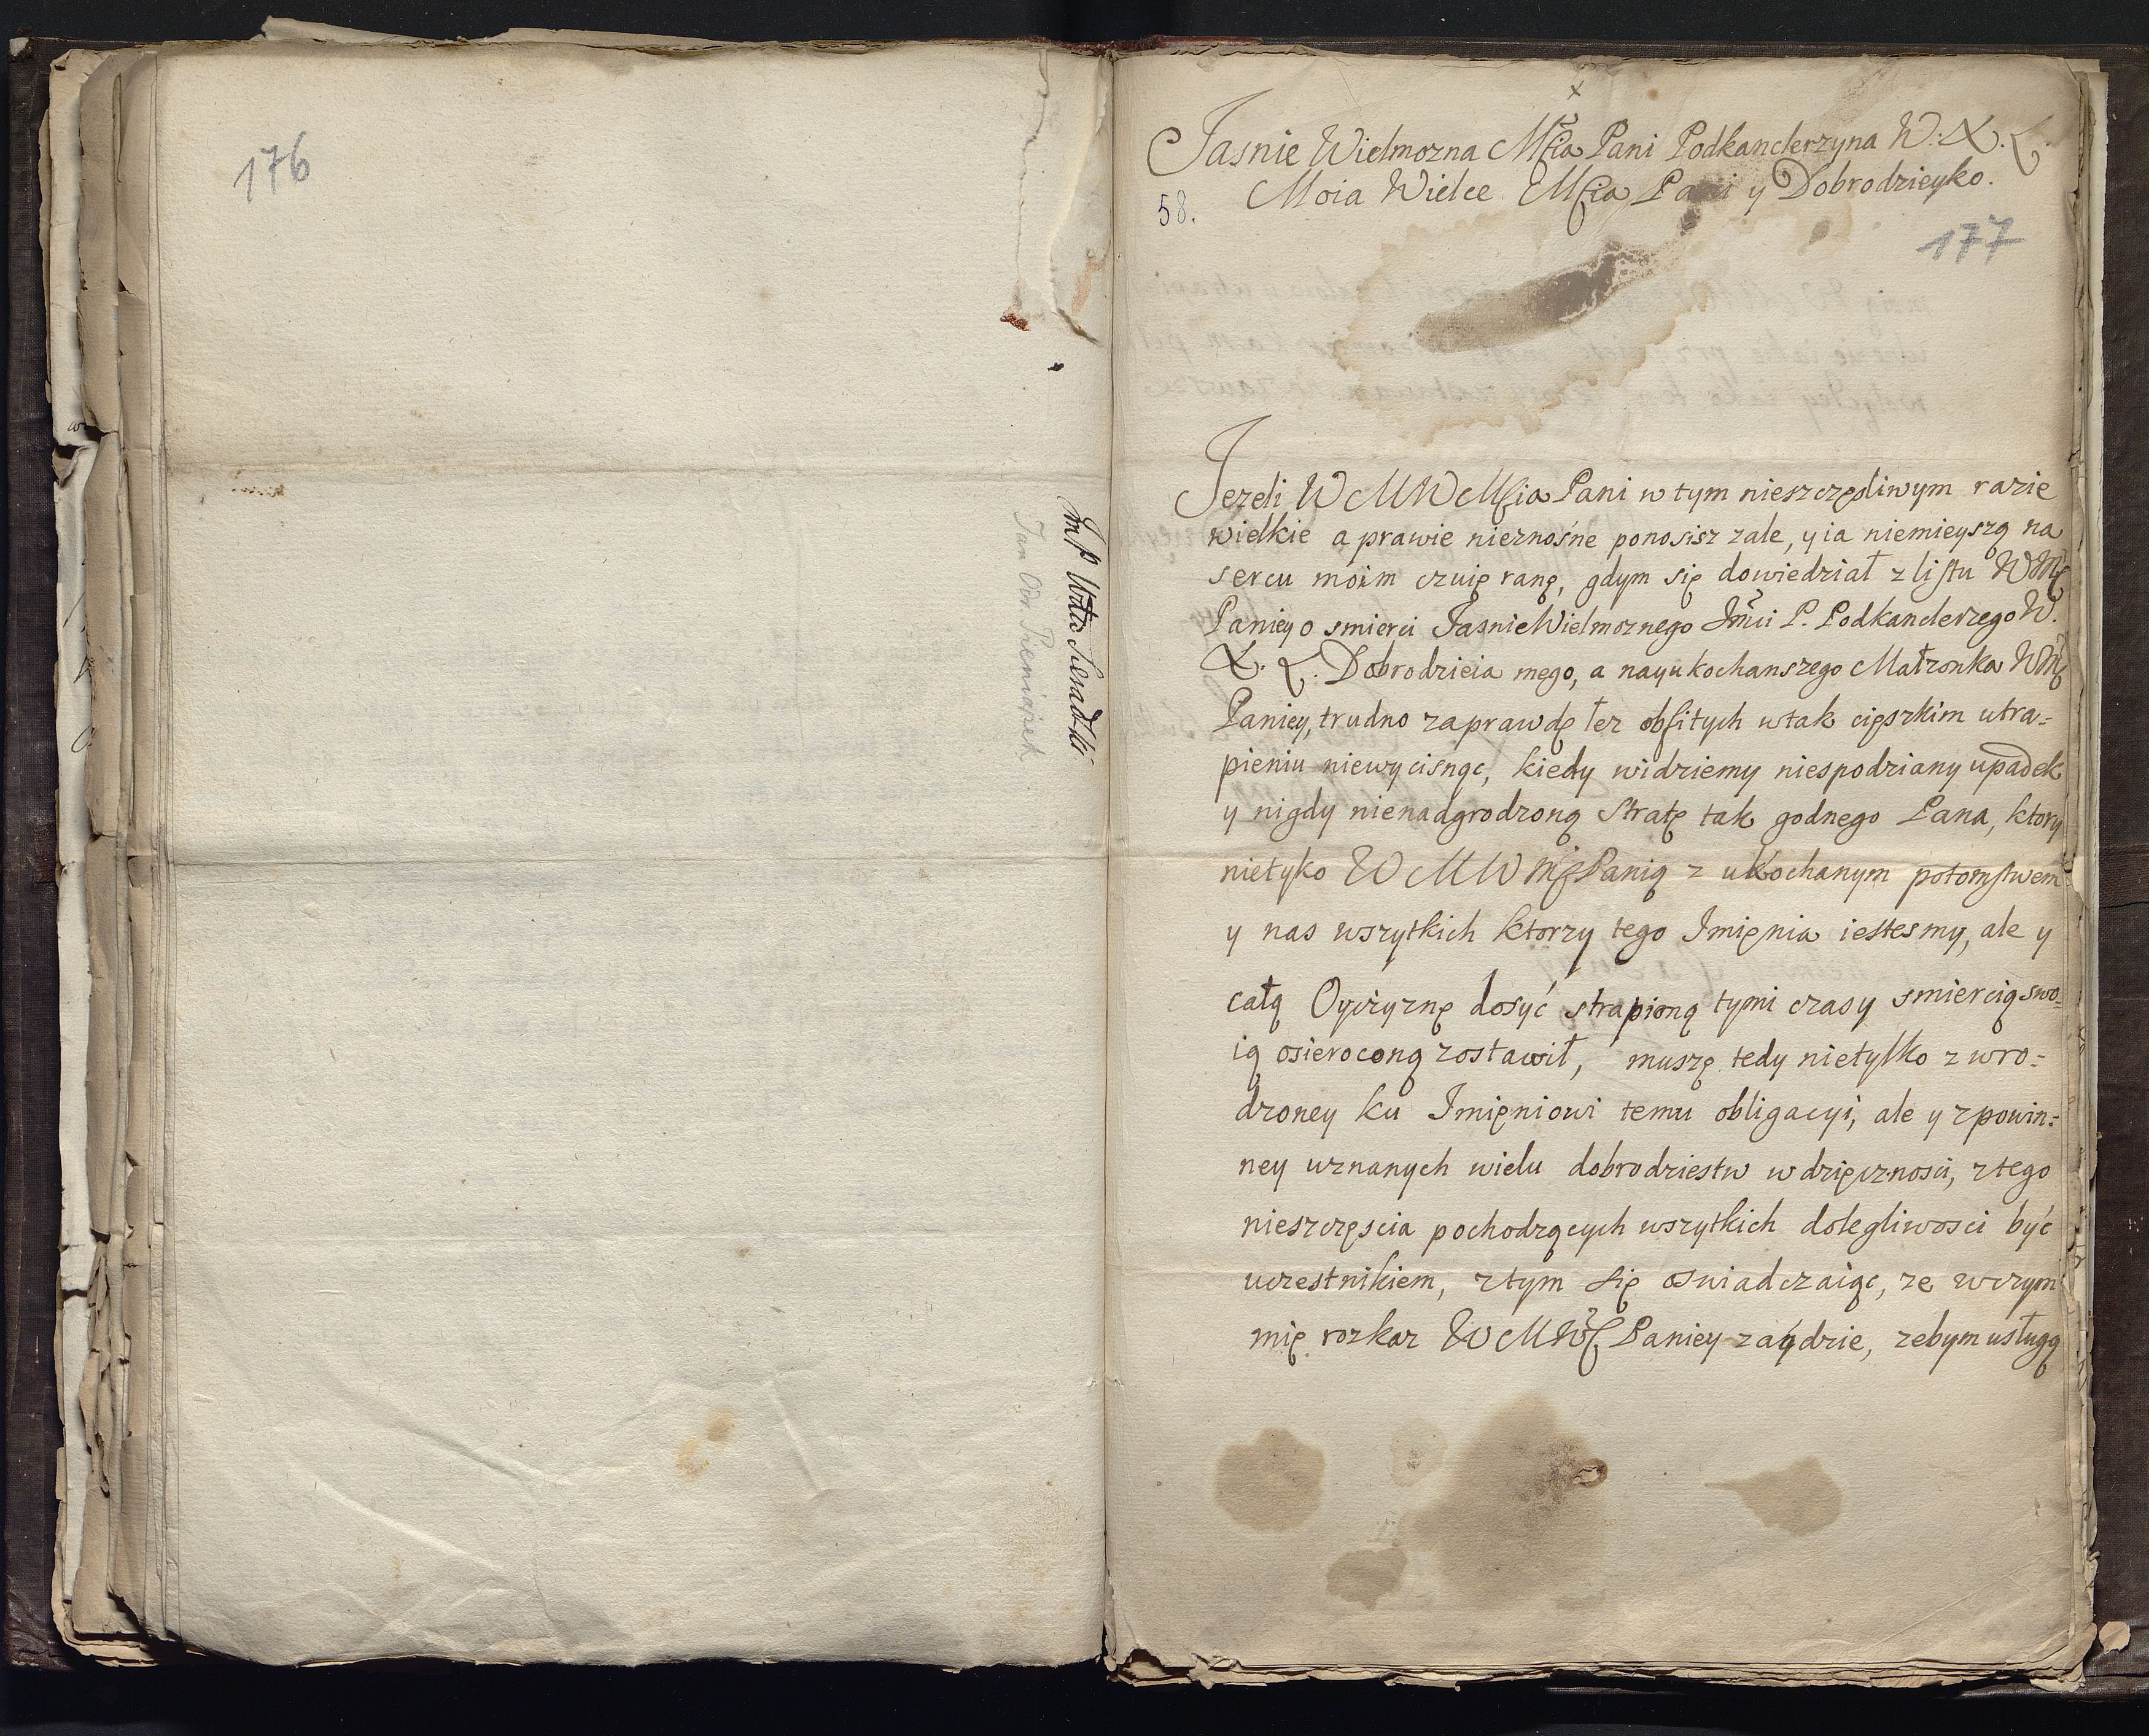 176
Jan Odr. Pieniążek
Jasnie Wielmozna Mścia Pani Podkanclerzyna W. X. L.
Moia Wielce Mścia Pani y Dobrodzieyko.
58.
177
Jezeli WMWMścia Pani w tym nieszczęsliwym razie
wielkie a prawie nieznośne ponosisz zale, y ia niemieyszą na
sercu moim czuię ranę, gdym się dowiedział z listu WMś
Paniey o smierci JasnieWielmoznego Jmći P. Podkanclerzego W.
X. L. Dobrodzieia mego, a nayukochanszego Małzonka WMś
Paniey, trudno zaprawdę łez obfitych w tak cięszkim utra=
pieniu niewycisnąc, kiedy widziemy niespodziany upadek
y nigdy nienadgrodzoną stratę tak godnego Pana, ktory
nietyko WMWMś Panią z ukochanym potomstwem
y nas wszytkich ktorzy tego Imięnia iestesmy, ale y
całą Oyczyznę dosyć strapioną tymi czasy smiercią swo=
ią osieroconą zostawił, muszę tedy nietylko z wro=
dzoney ku Imięniowi temu obligacyi, ale y z powin=
ney uznanych wielu dobrodziestw wdzięcznosci, z tego
nieszczęscia pochodzących wszytkich dolegliwosci być
uczestnikiem, z tym się oswiadczaiąc, ze w czym
mię rozkaz WMWś Paniey zaydzie, zebym usługą